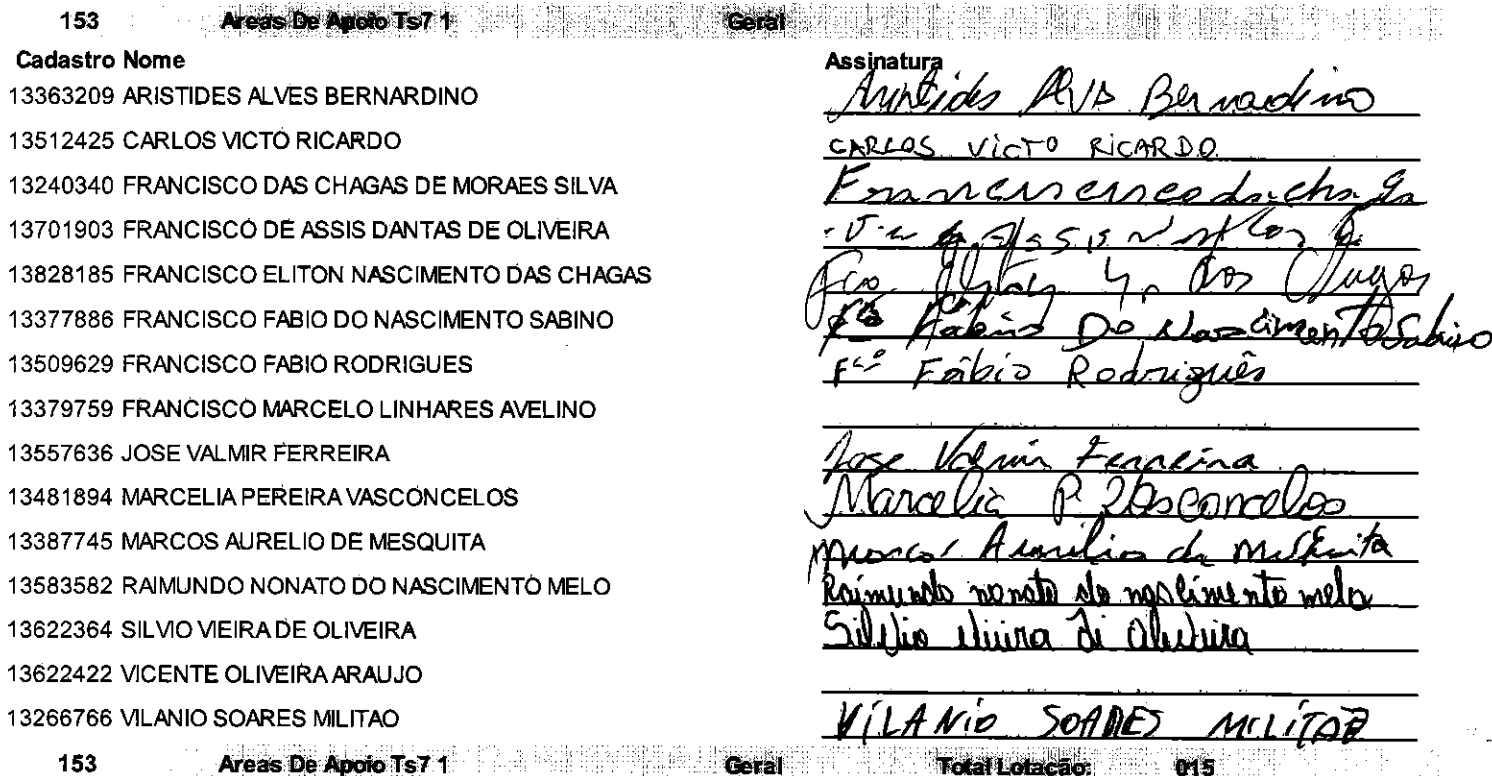 153 Areas De Apoio Ts7 1 Geral
Cadastro Nome Assinatura
13363209 ARISTIDES ALVES BERNARDINO Aristides Alves Bernardino
13512425 CARLOS VICTO RICARDO CARLOS VICTO RICARDO
13240340 FRANCISCO DAS CHAGAS DE MORAES SILVA
13701903 FRANCISCO DE ASSIS DANTAS DE OLIVEIRA
13828185 FRANCISCO ELITON NASCIMENTO DAS CHAGAS Fco
13377886 FRANCISCO FABIO DO NASCIMENTO SABINO Fco Fabio Do Nascimento Sabino
13509629 FRANCISCO FABIO RODRIGUES Fco Fábio Rodriguês
13379759 FRANCISCO MARCELO LINHARES AVELINO
13557636 JOSE VALMIR FERREIRA Jose Valmir Ferreira
13481894 MARCELIA PEREIRA VASCONCELOS Marcelia P. Vasconcelos
13387745 MARCOS AURELIO DE MESQUITA Marcos Aurelio de Mesquita
13583582 RAIMUNDO NONATO DO NASCIMENTO MELO Raimundo nonato do nascimento melo
13622364 SILVIO VIEIRA DE OLIVEIRA Silvio Vieira di Oliveira
13622422 VICENTE OLIVEIRA ARAUJO
13266766 VILANIO SOARES MILITAO VILANIO SOARES MILITAO
153 Areas De Apoio Ts7 1 Geral Total Lotação: 015